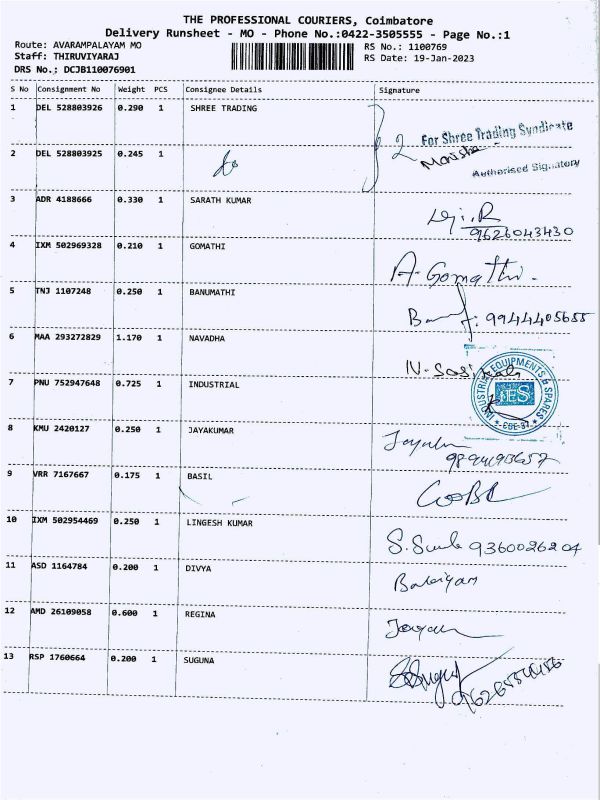 THE PROFESSIONAL COURIERS, Coimbatore
Delivery Runsheet - MO - Phone No.:0422-3505555 - Page No.:1
Route: AVARAMPALAYAM MO RS No.: 1100769
Staff: THIRUVIYARAJ RS Date: 19-Jan-2023
DRS No.: DCJB110076901
S No Consignment No Weight PCS Consignee Details Signature
1 DEL 528803926 0.290 1 SHREE TRADING
2 For Shree Trading Syndicate
2 DEL 528803925 0.245 1
Authorised Signatory
3 ADR 4188666 0.330 1 SARATH KUMAR
9626043430
4 IXM 502969328 0.210 1 GOMATHI
A. Gomathi.
5 TNJ 1107248 0.250 1 BANUMATHI
: 9944405655
6 MAA 293272829 1.170 1 NAVADHA
N. Sasikala
7 PNU 752947648 0.725 1 INDUSTRIAL
INDUSTRIAL EQUIPMENTS & SPARES
IES
8 KMU 2420127 0.250 1 JAYAKUMAR
9 VRR 7167667 0.175 1 BASIL
10 IXM 502954469 0.250 1 LINGESH KUMAR
9360026204
11 ASD 1164784 0.200 1 DIVYA
12 AMD 26109058 0.600 1 REGINA
13 RSP 1760664 0.200 1 SUGUNA